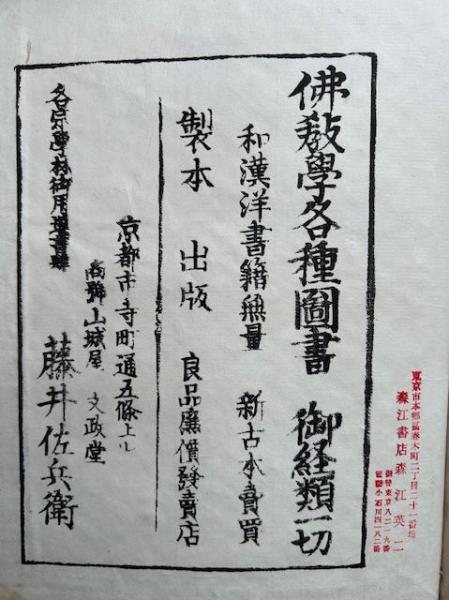 佛敎學各種圖書 御経類一切
和漢洋書籍無量 新古本賣買
製本 出版 良品廉價發賣店
京都市寺町通五條上ル
商號山城屋 文政堂
藤井佐兵衛
各宗學林御用書肆
東京市本郷區春木町二丁目二十一番地
森江書店 森江英二